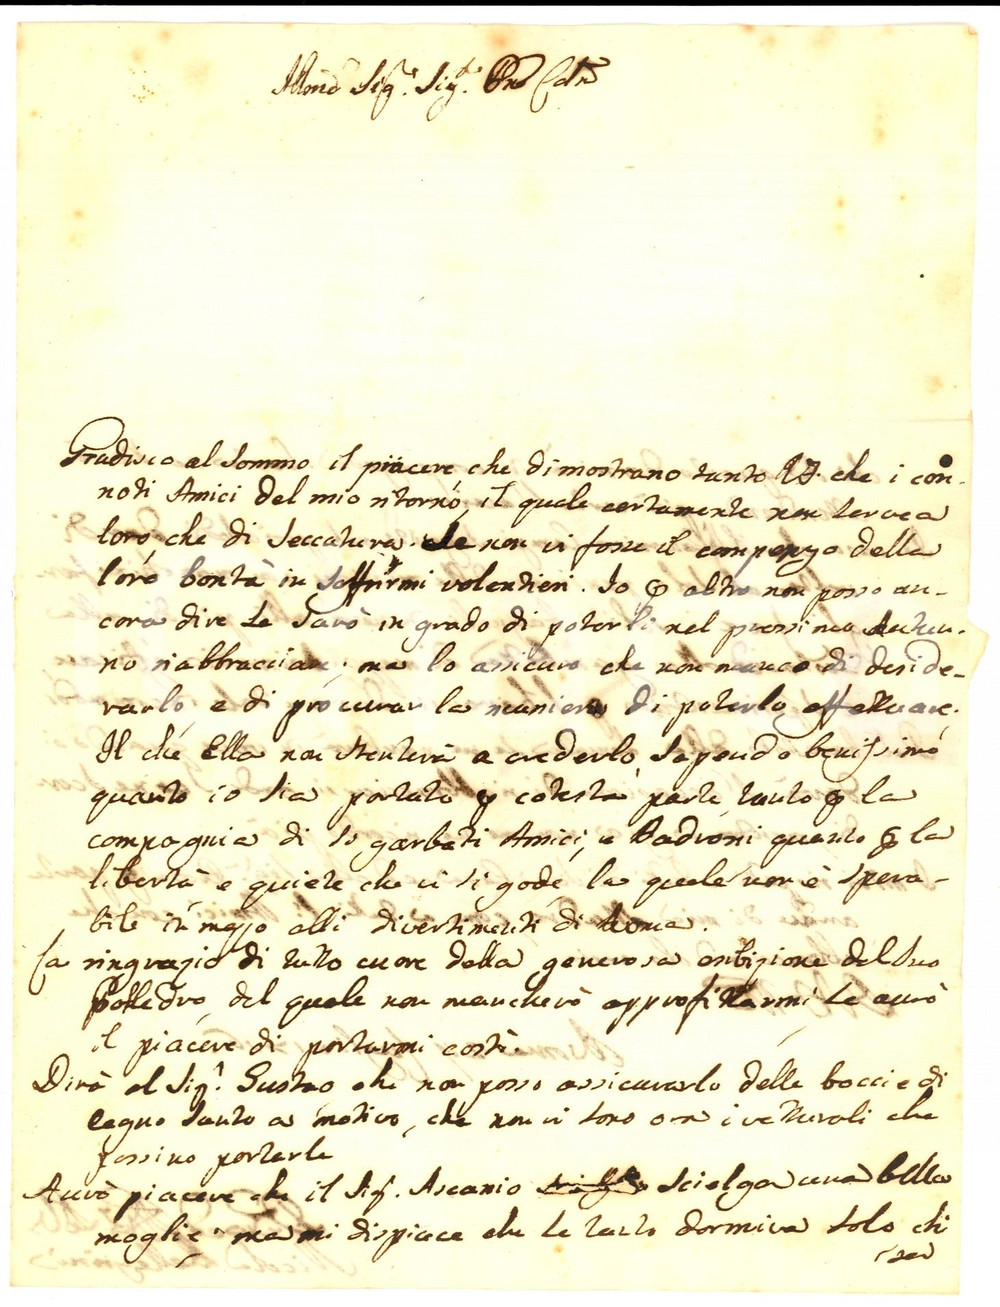 Sigr. Sigr. Prone
Gradisco al sommo il piacere che dimostrano tanto che i con-
noti Amici del mio ritorno, il quale certamente non serve a
loro che di seccatura. Se non vi fosse il compenso della
loro bontà in soffrirmi volentieri. Io altro non posso an-
cora dire se sarò in grado di poterli nel prossimo Autun-
no riabbracciare; ma lo assicuro che non manco di deside-
rarlo, e di procurar la maniera di poterlo effettuare.
Il che Ella non stenterà a crederlo, sapendo benissimo
quanto io sia portato cotesta parte, tanto la
compagnia di garbati Amici, e Padroni quanto la
libertà e quiete che vi si gode, la quale non è spera-
bile in mezzo alli divertimenti di Roma.
La ringrazio di tutto cuore della generosa esibizione del suo
polledro, del quale non mancherò approfittarmi se avrò
il piacere di portarmi costì.
Dirà al Sigr. che non posso assicurarlo delle boccie di
legno tanto a motivo, che non vi sono ora i vetturali che
possino portarle
Avrò piacere che il Sigr. Ascanio sciolga una bella
moglie ma mi dispiace che se tarlo dormiva solo chi
sa